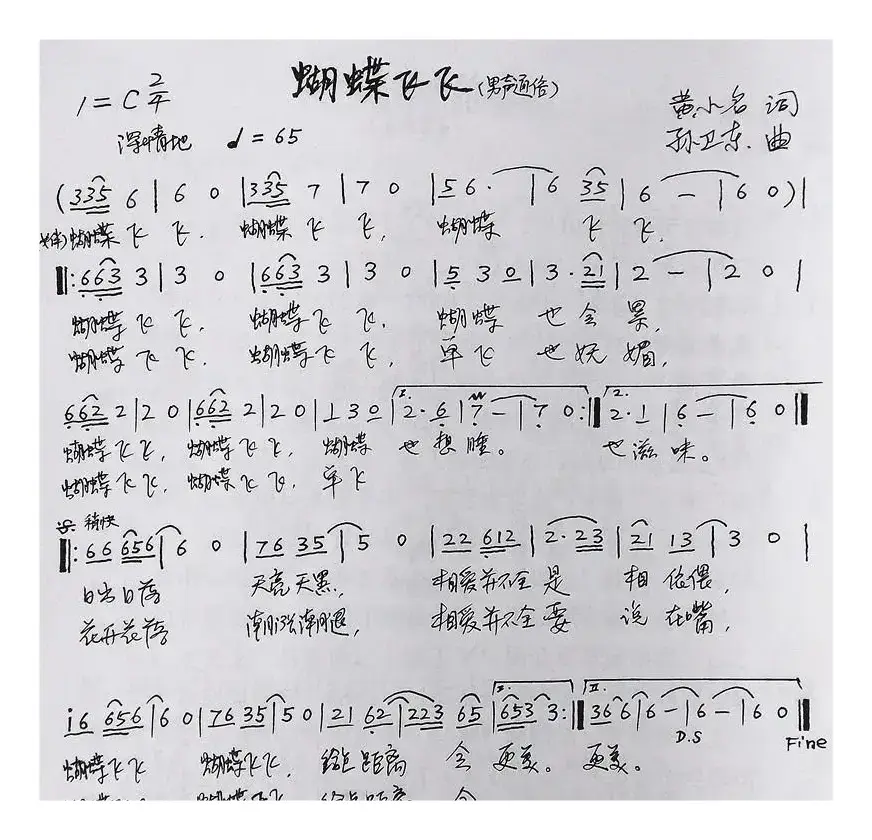 蝴蝶飞飞(男声通俗)
1=C 2/4
黄小名 词
深情地 ♩=65
孙卫东 曲
(335 6 | 6 0 | 335 7 | 7 0 | 56· | 6 35 | 6 - | 6 0) |
蝴蝶飞飞. 蝴蝶飞飞, 蝴蝶飞飞.
‖: 663 3 | 3 0 | 663 3 | 3 0 | 5 3 0 | 3· 21 | 2 - | 2 0 |
蝴蝶飞飞, 蝴蝶飞飞, 蝴蝶也会累,
蝴蝶飞飞, 蝴蝶飞飞, 单飞也妩媚,
662 2 | 2 0 | 662 2 | 2 0 | 1 3 0 | 1. 2· 6 | 7 - | 7 0 :‖ 2. 2· 1 | 6 - | 6 0 ‖
蝴蝶飞飞, 蝴蝶飞飞, 蝴蝶也想睡。 也滋味。
蝴蝶飞飞, 蝴蝶飞飞, 单飞
稍快
‖: 66 656 | 6 0 | 76 35 | 5 0 | 22 612 | 2· 23 | 21 13 | 3 0 |
日出日落 天亮天黑, 相爱并不全是相依偎,
花开花落 潮涨潮退, 相爱并不全要说在嘴,
i6 656 | 6 0 | 76 35 | 5 0 | 21 62 | 223 65 | I. 653 3 :‖ II. 36 6 | 6 - | 6 - | 6 0 ‖
D.S Fine
蝴蝶飞飞 蝴蝶飞飞, 给点距离会更美。 更美。